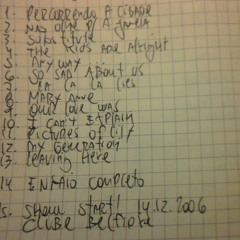 1. PERCORRENDO A CIDADE
2. NÃO OLHE P/ A JANELA
3. SUBSTITUTE
4. THE KIDS ARE ALRIGHT
5. ANYWAY
6. SO SAD ABOUT US
7. LA LA LA LIES
8. MARY ANNE
9. OUR LOVE WAS
10. I CAN'T EXPLAIN
11. PICTURES OF LILY
12. MY GENERATION
13. LEAVING HERE
14 ENSAIO COMPLETO
15. SHOW START! 14.12.2006
CLUBE BELFIORE